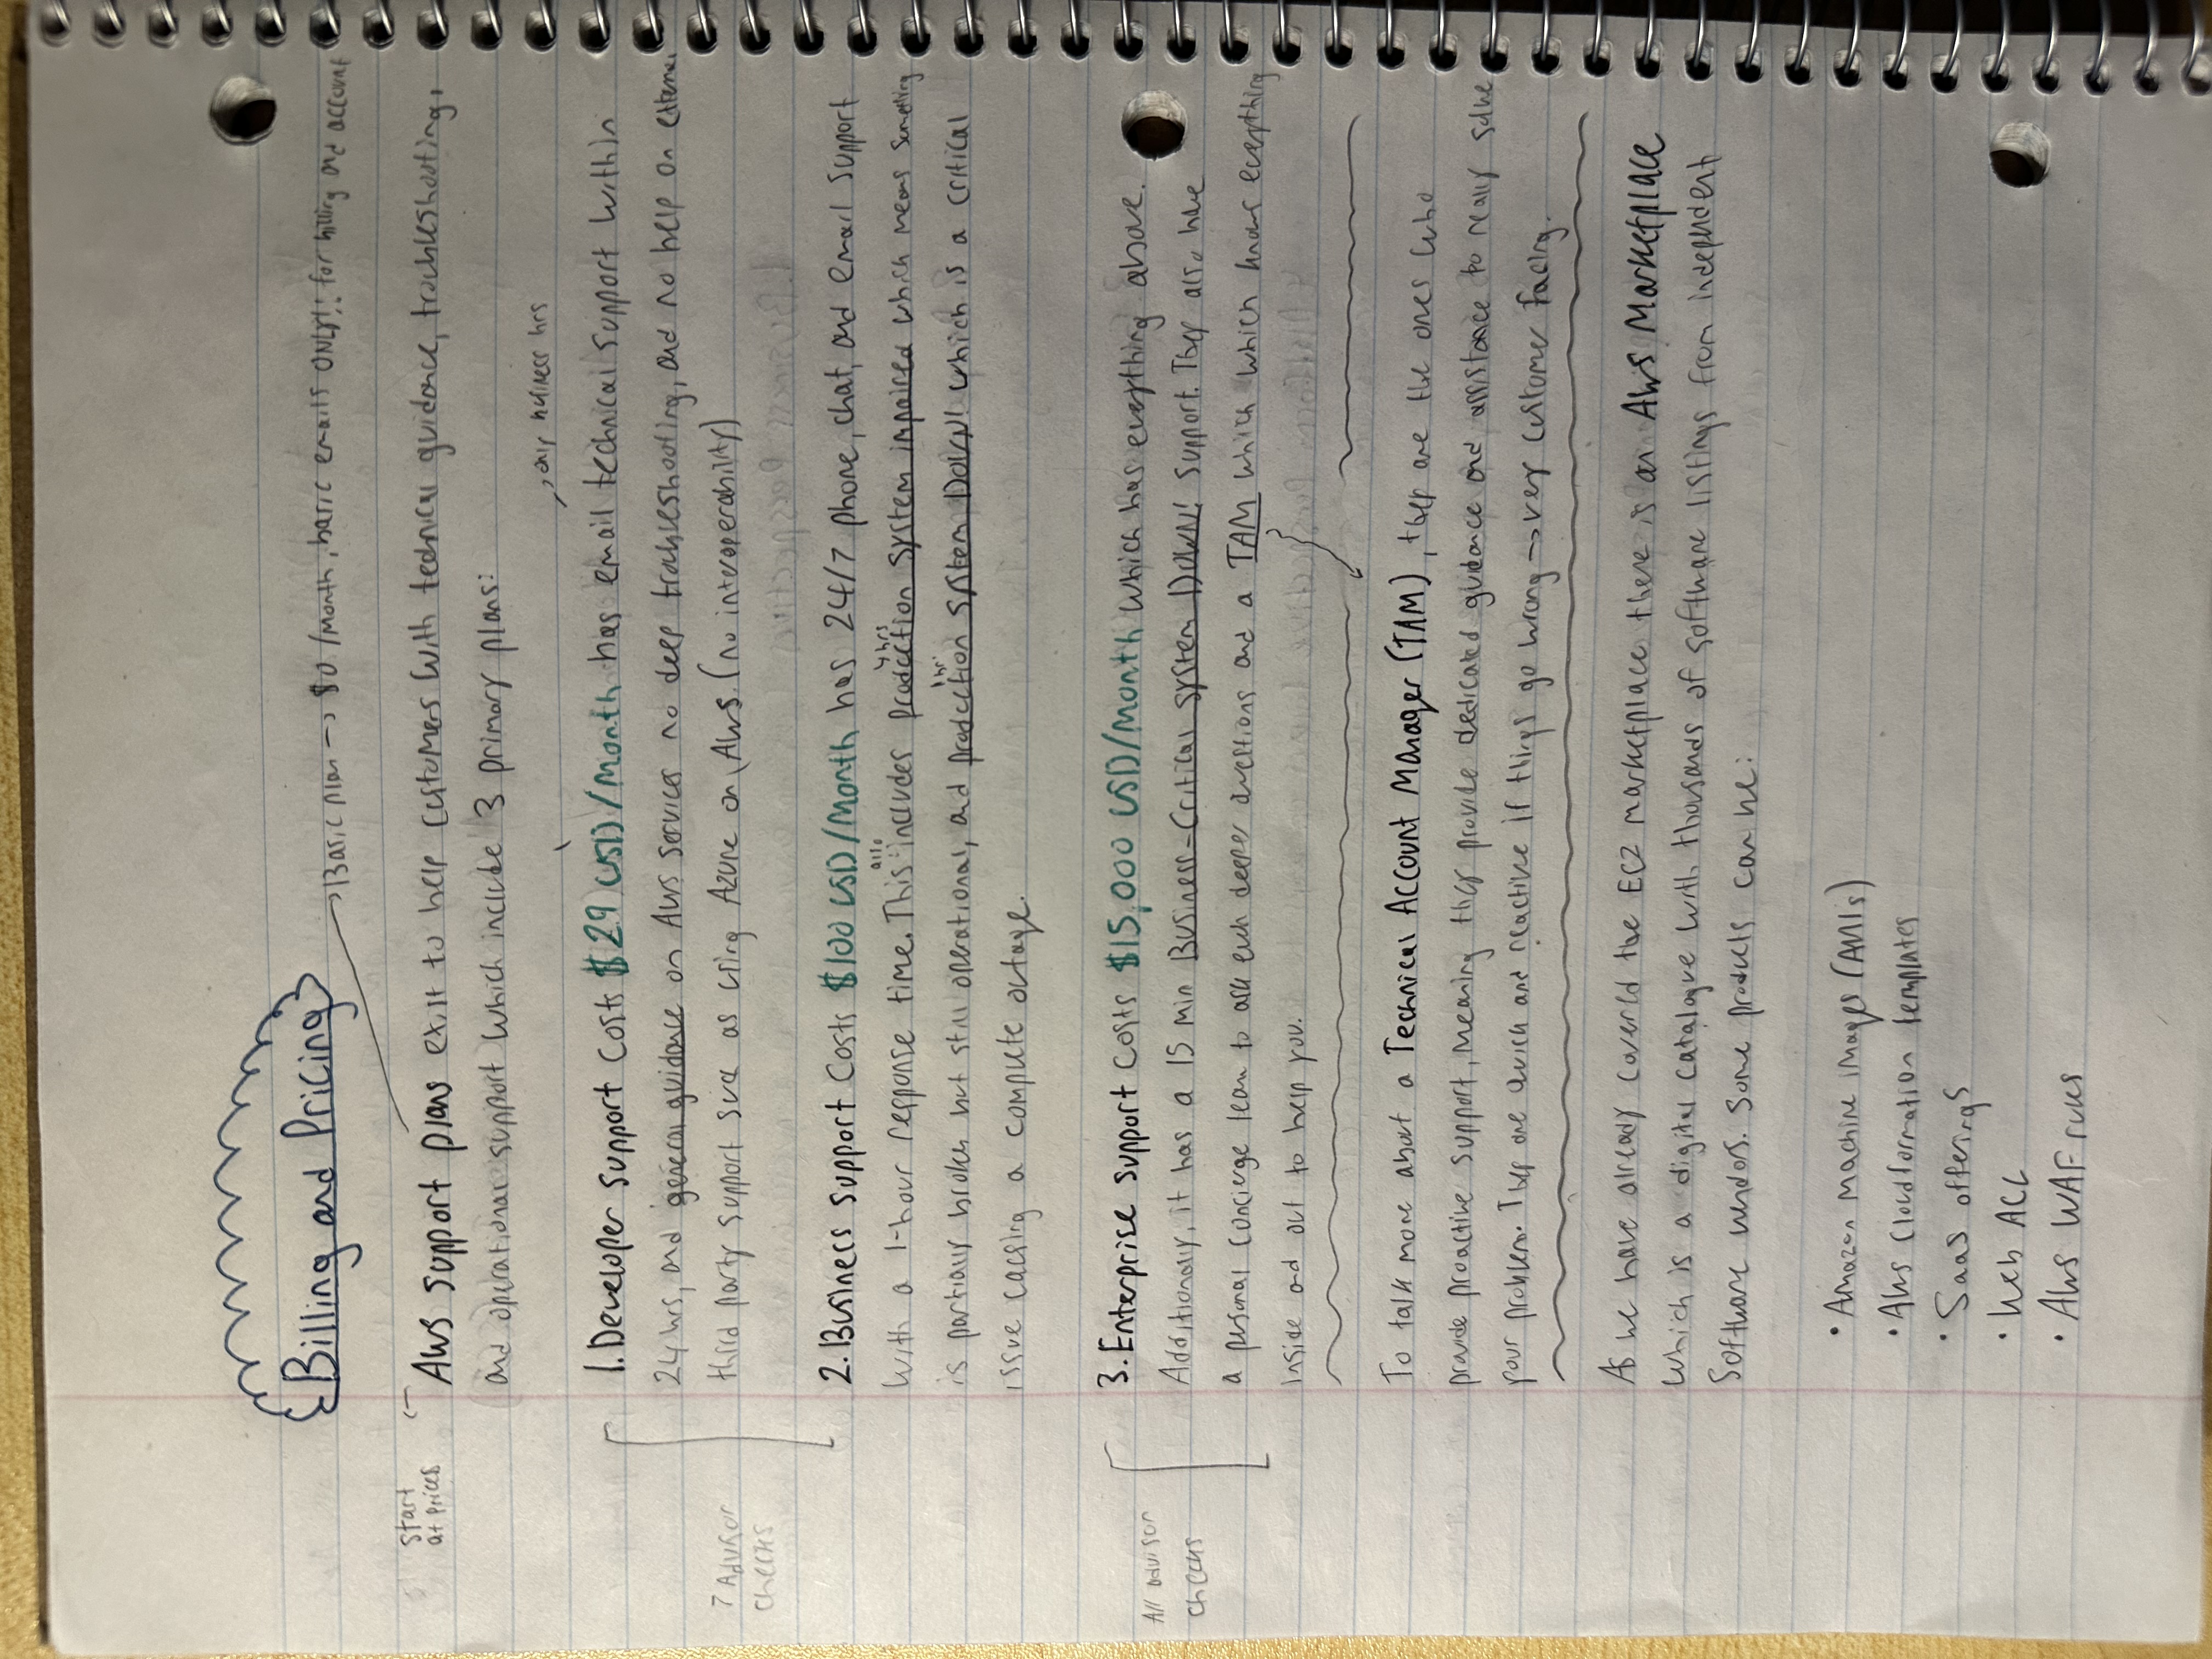 Billing and Pricing
→ Basic plan → $0 /month, basic emails ONLY!! for billing and account
start
at prices
AWS support plans exist to help customers with technical guidance, troubleshooting,
and operational support which include 3 primary plans:
→ only business hrs
1. Developer support costs $29 USD/month has email technical support within
24 hrs, and general guidance on AWS services no deep troubleshooting, and no help on external
third party support such as using Azure on AWS. (no interoperability)
7 Advisor
checks
2. Business support costs $100 USD/month has 24/7 phone, chat, and email support
also
4 hrs
with a 1-hour response time. This includes production system impaired which means something
1 hr.
is partially broken but still operational, and production system DOWN! which is a critical
issue causing a complete outage.
3. Enterprise support costs $15,000 USD/month which has everything above.
All advisor
checks
Additionally, it has a 15 min Business-Critical system DOWN! support. They also have
a personal concierge team to ask even deeper questions and a TAM which which knows everything
inside and out to help you.
To talk more about a Technical Account Manager (TAM), they are the ones who
provide proactive support, meaning they provide dedicated guidance and assistance to really solve
your problem. They are quick and reactive if things go wrong → very customer facing.
As we have already covered the EC2 marketplace there is an AWS Marketplace
which is a digital catalogue with thousands of software listings from indepndent
software vendors. Some products can be:
• Amazon Machine images (AMIs)
• AWS Cloudformation templates
• SaaS offerings
• Web ACL
• AWS WAF rules